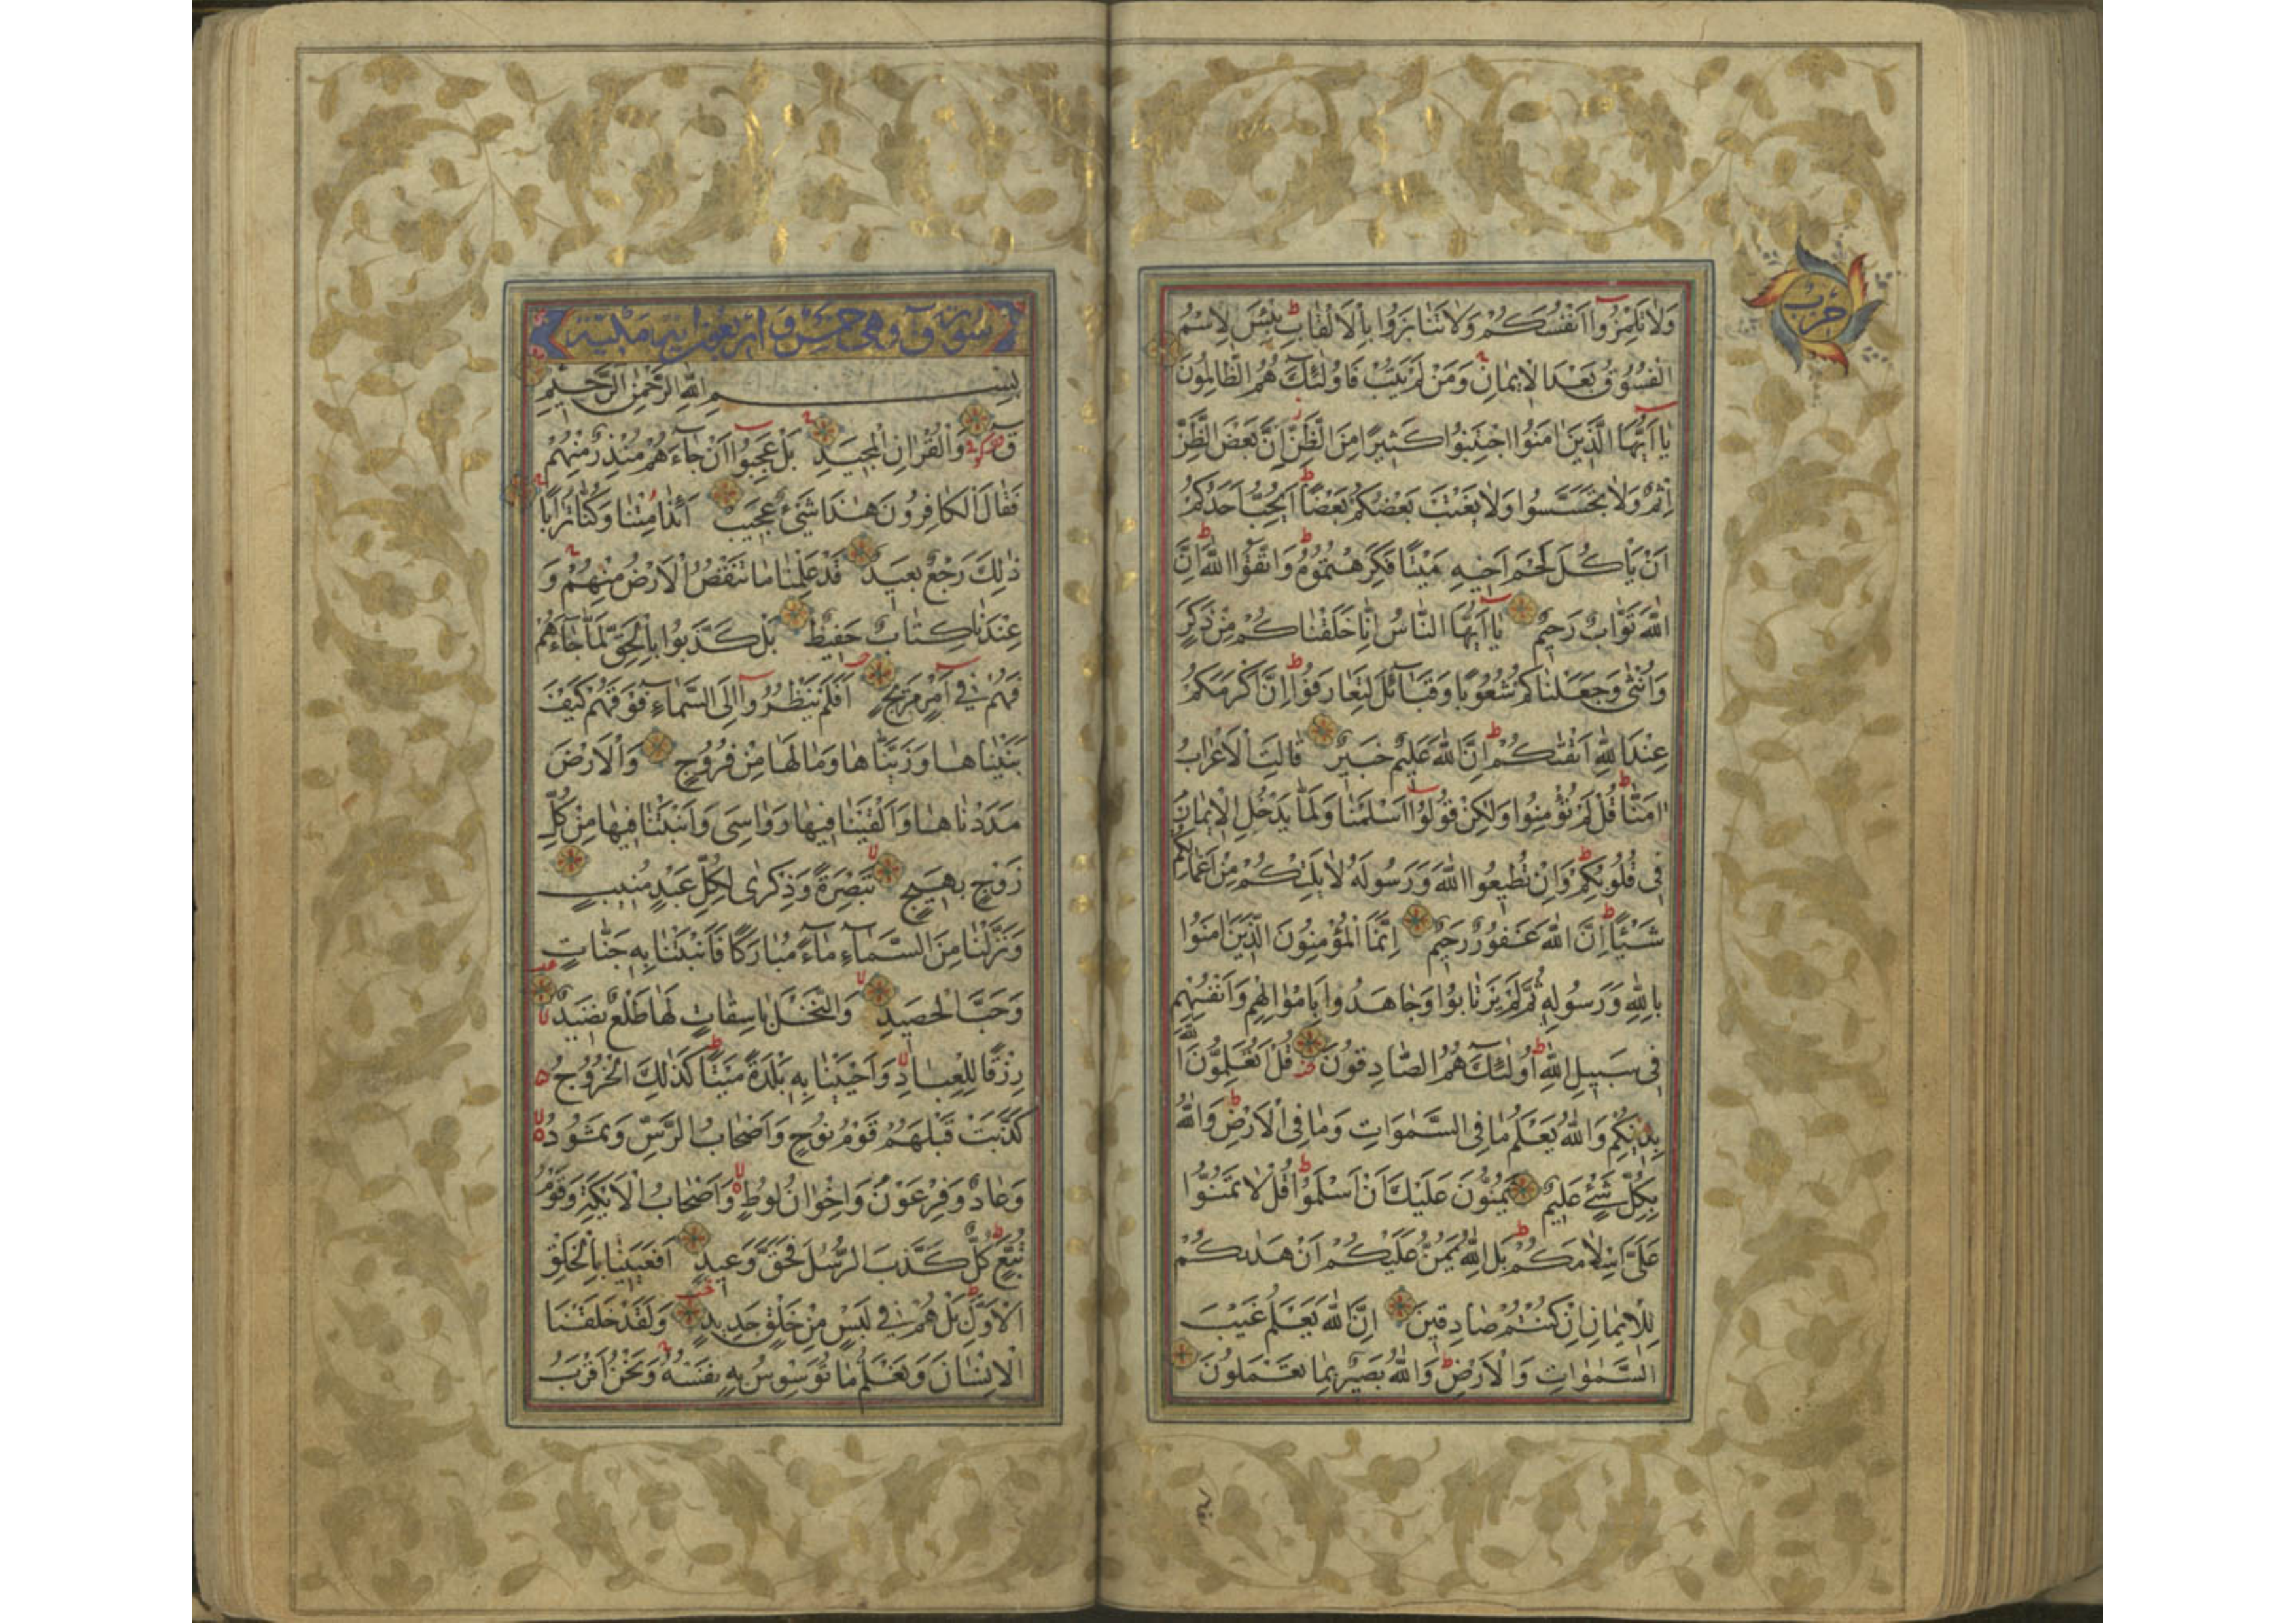 وَلَا تَلْمِزُوٓا اَنْفُسَكُمْ وَلَا تَنَابَزُوا بِالْاَلْقَابِ ط بِئْسَ لِاسْمُ
الْفُسُوقُ بَعْدَ الْاِيمَانِ وَمَنْ لَمْ يَتُبْ فَاُولٰٓئِكَ هُمُ الظَّالِمُونَ
يَا اَيُّهَا الَّذِينَ اٰمَنُوا اجْتَنِبُوا كَثِيرًا مِنَ الظَّنِّ اِنَّ بَعْضَ الظَّنِّ
اِثْمٌ وَلَا تَجَسَّسُوا وَلَا يَغْتَبْ بَعْضُكُمْ بَعْضًا ط اَيُحِبُّ اَحَدُكُمْ
اَنْ يَأْكُلَ لَحْمَ اَخِيهِ مَيْتًا فَكَرِهْتُمُوهُ ط وَاتَّقُوا اللّٰهَ ط اِنَّ
اللّٰهَ تَوَّابٌ رَحِيمٌ يَا اَيُّهَا النَّاسُ اِنَّا خَلَقْنَاكُمْ مِنْ ذَكَرٍ
وَاُنْثٰى وَجَعَلْنَاكُمْ شُعُوبًا وَقَبَآئِلَ لِتَعَارَفُوا ط اِنَّ اَكْرَمَكُمْ
عِنْدَ اللّٰهِ اَتْقٰىكُمْ ط اِنَّ اللّٰهَ عَلِيمٌ خَبِيرٌ قَالَتِ الْاَعْرَابُ
اٰمَنَّا ط قُلْ لَمْ تُؤْمِنُوا وَلٰكِنْ قُولُوٓا اَسْلَمْنَا وَلَمَّا يَدْخُلِ الْاِيمَانُ
فِى قُلُوبِكُمْ ط وَاِنْ تُطِيعُوا اللّٰهَ وَرَسُولَهُ لَا يَلِتْكُمْ مِنْ اَعْمَالِكُمْ
شَيْئًا ط اِنَّ اللّٰهَ غَفُورٌ رَحِيمٌ اِنَّمَا الْمُؤْمِنُونَ الَّذِينَ اٰمَنُوا
بِاللّٰهِ وَرَسُولِهِ ثُمَّ لَمْ يَرْتَابُوا وَجَاهَدُوا بِاَمْوَالِهِمْ وَاَنْفُسِهِمْ
فِى سَبِيلِ اللّٰهِ ط اُولٰٓئِكَ هُمُ الصَّادِقُونَ قُلْ اَتُعَلِّمُونَ اللّٰهَ
بِدِينِكُمْ وَاللّٰهُ يَعْلَمُ مَا فِى السَّمٰوَاتِ وَمَا فِى الْاَرْضِ ط وَاللّٰهُ
بِكُلِّ شَىْءٍ عَلِيمٌ يَمُنُّونَ عَلَيْكَ اَنْ اَسْلَمُوا ط قُلْ لَا تَمُنُّوا
عَلَىَّ اِسْلَامَكُمْ ط بَلِ اللّٰهُ يَمُنُّ عَلَيْكُمْ اَنْ هَدٰىكُمْ
لِلْاِيمَانِ اِنْ كُنْتُمْ صَادِقِينَ اِنَّ اللّٰهَ يَعْلَمُ غَيْبَ
السَّمٰوَاتِ وَالْاَرْضِ ط وَاللّٰهُ بَصِيرٌ بِمَا تَعْمَلُونَ
حزب
سورة ق وهى خمس و اربعون اية مكية
بِسْمِ اللّٰهِ الرَّحْمٰنِ الرَّحِيمِ
قٓ وَالْقُرْاٰنِ الْمَجِيدِ بَلْ عَجِبُوٓا اَنْ جَآءَهُمْ مُنْذِرٌ مِنْهُمْ
فَقَالَ الْكَافِرُونَ هٰذَا شَىْءٌ عَجِيبٌ اَئِذَا مِتْنَا وَكُنَّا تُرَابًا
ذٰلِكَ رَجْعٌ بَعِيدٌ قَدْ عَلِمْنَا مَا تَنْقُصُ الْاَرْضُ مِنْهُمْ وَ
عِنْدَنَا كِتَابٌ حَفِيظٌ بَلْ كَذَّبُوا بِالْحَقِّ لَمَّا جَآءَهُمْ
فَهُمْ فِى اَمْرٍ مَرِيجٍ اَفَلَمْ يَنْظُرُوٓا اِلَى السَّمَآءِ فَوْقَهُمْ كَيْفَ
بَنَيْنَاهَا وَزَيَّنَّاهَا وَمَا لَهَا مِنْ فُرُوجٍ وَالْاَرْضَ
مَدَدْنَاهَا وَاَلْقَيْنَا فِيهَا رَوَاسِىَ وَاَنْبَتْنَا فِيهَا مِنْ كُلِّ
زَوْجٍ بَهِيجٍ تَبْصِرَةً وَذِكْرٰى لِكُلِّ عَبْدٍ مُنِيبٍ
وَنَزَّلْنَا مِنَ السَّمَآءِ مَآءً مُبَارَكًا فَاَنْبَتْنَا بِهِ جَنَّاتٍ
وَحَبَّ الْحَصِيدِ وَالنَّخْلَ بَاسِقَاتٍ لَهَا طَلْعٌ نَضِيدٌ
رِزْقًا لِلْعِبَادِ وَاَحْيَيْنَا بِهِ بَلْدَةً مَيْتًا ط كَذٰلِكَ الْخُرُوجُ
كَذَّبَتْ قَبْلَهُمْ قَوْمُ نُوحٍ وَاَصْحَابُ الرَّسِّ وَثَمُودُ
وَعَادٌ وَفِرْعَوْنُ وَاِخْوَانُ لُوطٍ وَاَصْحَابُ الْاَيْكَةِ وَقَوْمُ
تُبَّعٍ ط كُلٌّ كَذَّبَ الرُّسُلَ فَحَقَّ وَعِيدِ اَفَعَيِينَا بِالْخَلْقِ
الْاَوَّلِ ط بَلْ هُمْ فِى لَبْسٍ مِنْ خَلْقٍ جَدِيدٍ وَلَقَدْ خَلَقْنَا
الْاِنْسَانَ وَنَعْلَمُ مَا تُوَسْوِسُ بِهِ نَفْسُهُ وَنَحْنُ اَقْرَبُ